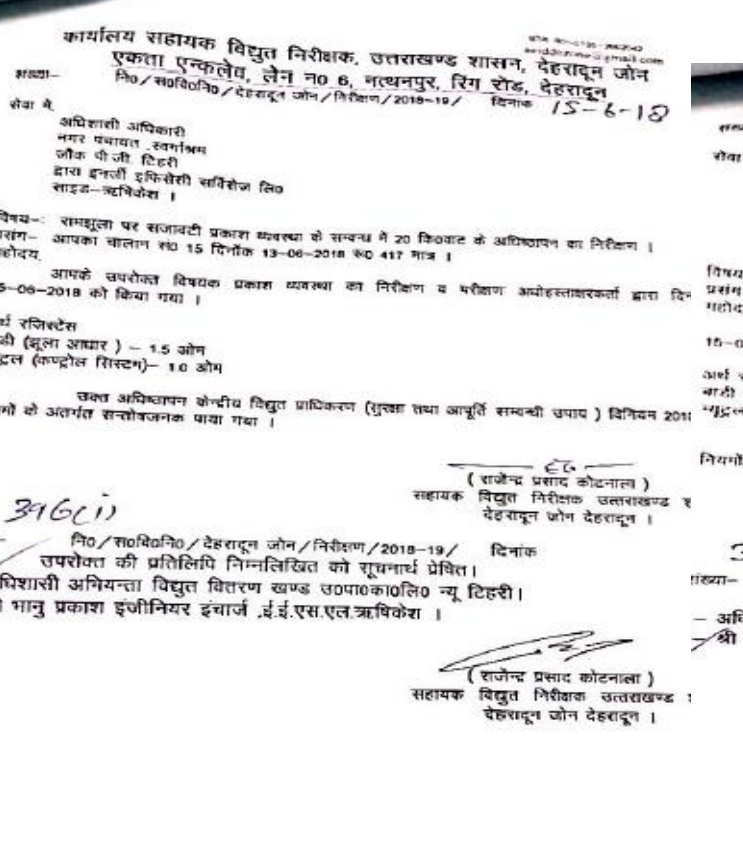 कार्यालय सहायक विद्युत निरीक्षक, उत्तराखण्ड शासन, देहरादून जोन
एकता एन्कलेव, लेन न0 6, नत्थनपुर, रिंग रोड, देहरादून
संख्या– नि0/स0वि0नि0/देहरादून जोन/निरीक्षण/2018–19/ दिनांक 15-6-18
सेवा में,
अधिशासी अधिकारी
नगर पंचायत ,स्वर्गाश्रम
जौंक पी.जी. टिहरी
द्वारा इनर्जी इफिसेंसी सर्विसेज लि0
साइड–ऋषिकेश ।
विषय–: रामझूला पर सजावटी प्रकाश व्यवस्था के सम्वन्ध में 20 कि0वाट के अधिष्ठापन का निरीक्षण ।
रसंग– आपका चालान सं0 15 दिनाँक 13–06–2018 रू0 417 मात्र ।
होदय,
आपके उपरोक्त विषयक प्रकाश व्यवस्था का निरीक्षण व परीक्षण अधोहस्ताक्षरकर्ता द्वारा दि
5–06–2018 को किया गया ।
र्थ रजिस्टेंस
डी (झूला आधार ) – 1.5 ओम
ट्रल (कण्ट्रोल सिस्टम)– 1.0 ओम
उक्त अधिष्ठापन केन्द्रीय विद्युत प्राधिकरण (सुरक्षा तथा आपूर्ति सम्वन्धी उपाय ) विनियम 201
मों के अंतर्गत सन्तोषजनक पाया गया ।
( राजेन्द्र प्रसाद कोटनाला )
सहायक विद्युत निरीक्षक उत्तराखण्ड
देहरादून जोन देहरादून ।
396(i)
नि0/स0वि0नि0/देहरादून जोन/निरीक्षण/2018–19/ दिनांक
उपरोक्त की प्रतिलिपि निम्नलिखित को सूचनार्थ प्रेषित।
धिशासी अभियन्ता विद्युत वितरण खण्ड उ0पा0का0लि0 न्यू टिहरी।
भानु प्रकाश इंजीनियर इंचार्ज ,ई.ई.एस.एल.ऋषिकेश ।
( राजेन्द्र प्रसाद कोटनाला )
सहायक विद्युत निरीक्षक उत्तराखण्ड
देहरादून जोन देहरादून ।
सेवा
विषय
प्रसंग
महोद
15–0
अर्थ
बाडी
न्यूट्रल
नियमों
3
संख्या–
– अधि
श्री